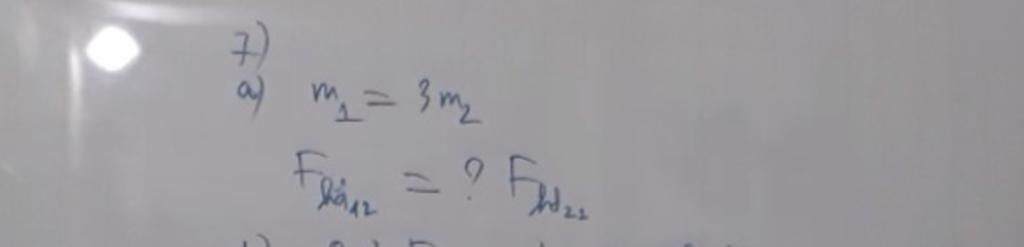 7)
a) m₁ = 3m₂
Fhd₁₂ = ? Fhd₂₁